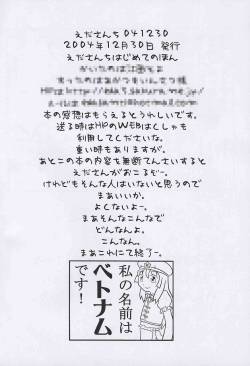 えださんち 041230
2004年12月30日 発行
えださんちはじめてのほん
本の感想はもらえるとうれしいです。
送る時はHPのWEBはくしゃも
利用してくださいな。
重い時もありますが。
あとこの本の内容も無断てんさいすると
えださんがおこるぞー。
けれどもそんな人はいないと思うので
まあいいか。
よくないよー。
まあそんなこんなで
どんなんよ。
こんなん。
まあこれにて終了ー。
私の名前は
ベトナム
です！